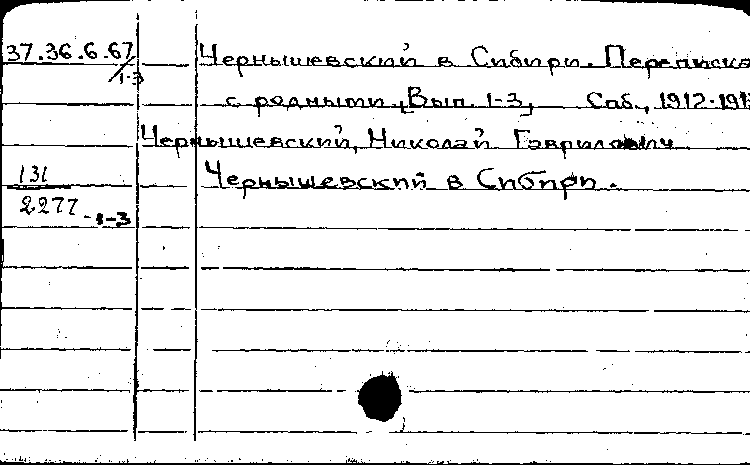 37.36.6.67/1-3
Чернышевский в Сибири. Переписка
с родными, [Вып. 1-3, Спб., 1912-191
Чернышевский, Николай Гаврилович
131
2277-1-3
Чернышевский в Сибири.